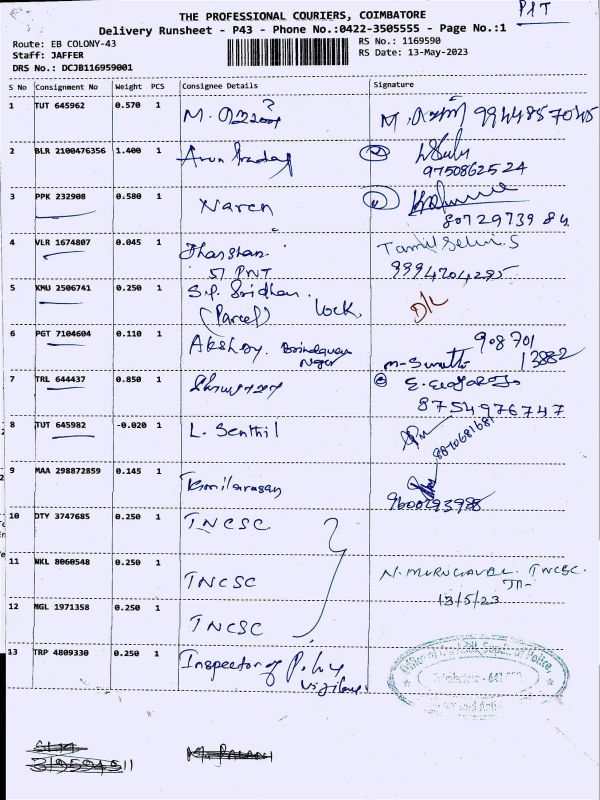 PIT
THE PROFESSIONAL COURIERS, COIMBATORE
Delivery Runsheet - P43 - Phone No.:0422-3505555 - Page No.:1
Route: EB COLONY-43
Staff: JAFFER
DRS No.: DCJB116959001
RS No.: 1169590
RS Date: 13-May-2023
S No Consignment No Weight PCS Consignee Details Signature
1 TUT 645962 0.570 1 M. 9944857045
2 BLR 2100476356 1.400 1 Arun
9750862524
3 PPK 232908 0.580 1 Naren
80729739 84
4 VLR 1674807 0.045 1 Dharshan. Tamil Selvi. S
57 PNT 9994204295
5 KMU 2506741 0.250 1 S.P. Sridhar D/L
(Parcel) Lock
6 PGT 7104604 0.110 1 Akshay. Brindavan 908701
Nagar 13882
7 TRL 644437 0.850 1
8754976747
8 TUT 645982 -0.020 1 L. Senthil 8870681681
9 MAA 298872859 0.145 1 Kavilarasan
9600293928
10 DTY 3747685 0.250 1 TNCSC
11 NKL 8060548 0.250 1 TNCSC N. MURUGAVEL. TNCSC.
13/5/23
12 NGL 1971358 0.250 1 TNCSC
13 TRP 4809330 0.250 1 Inspector of Police
Vigilance